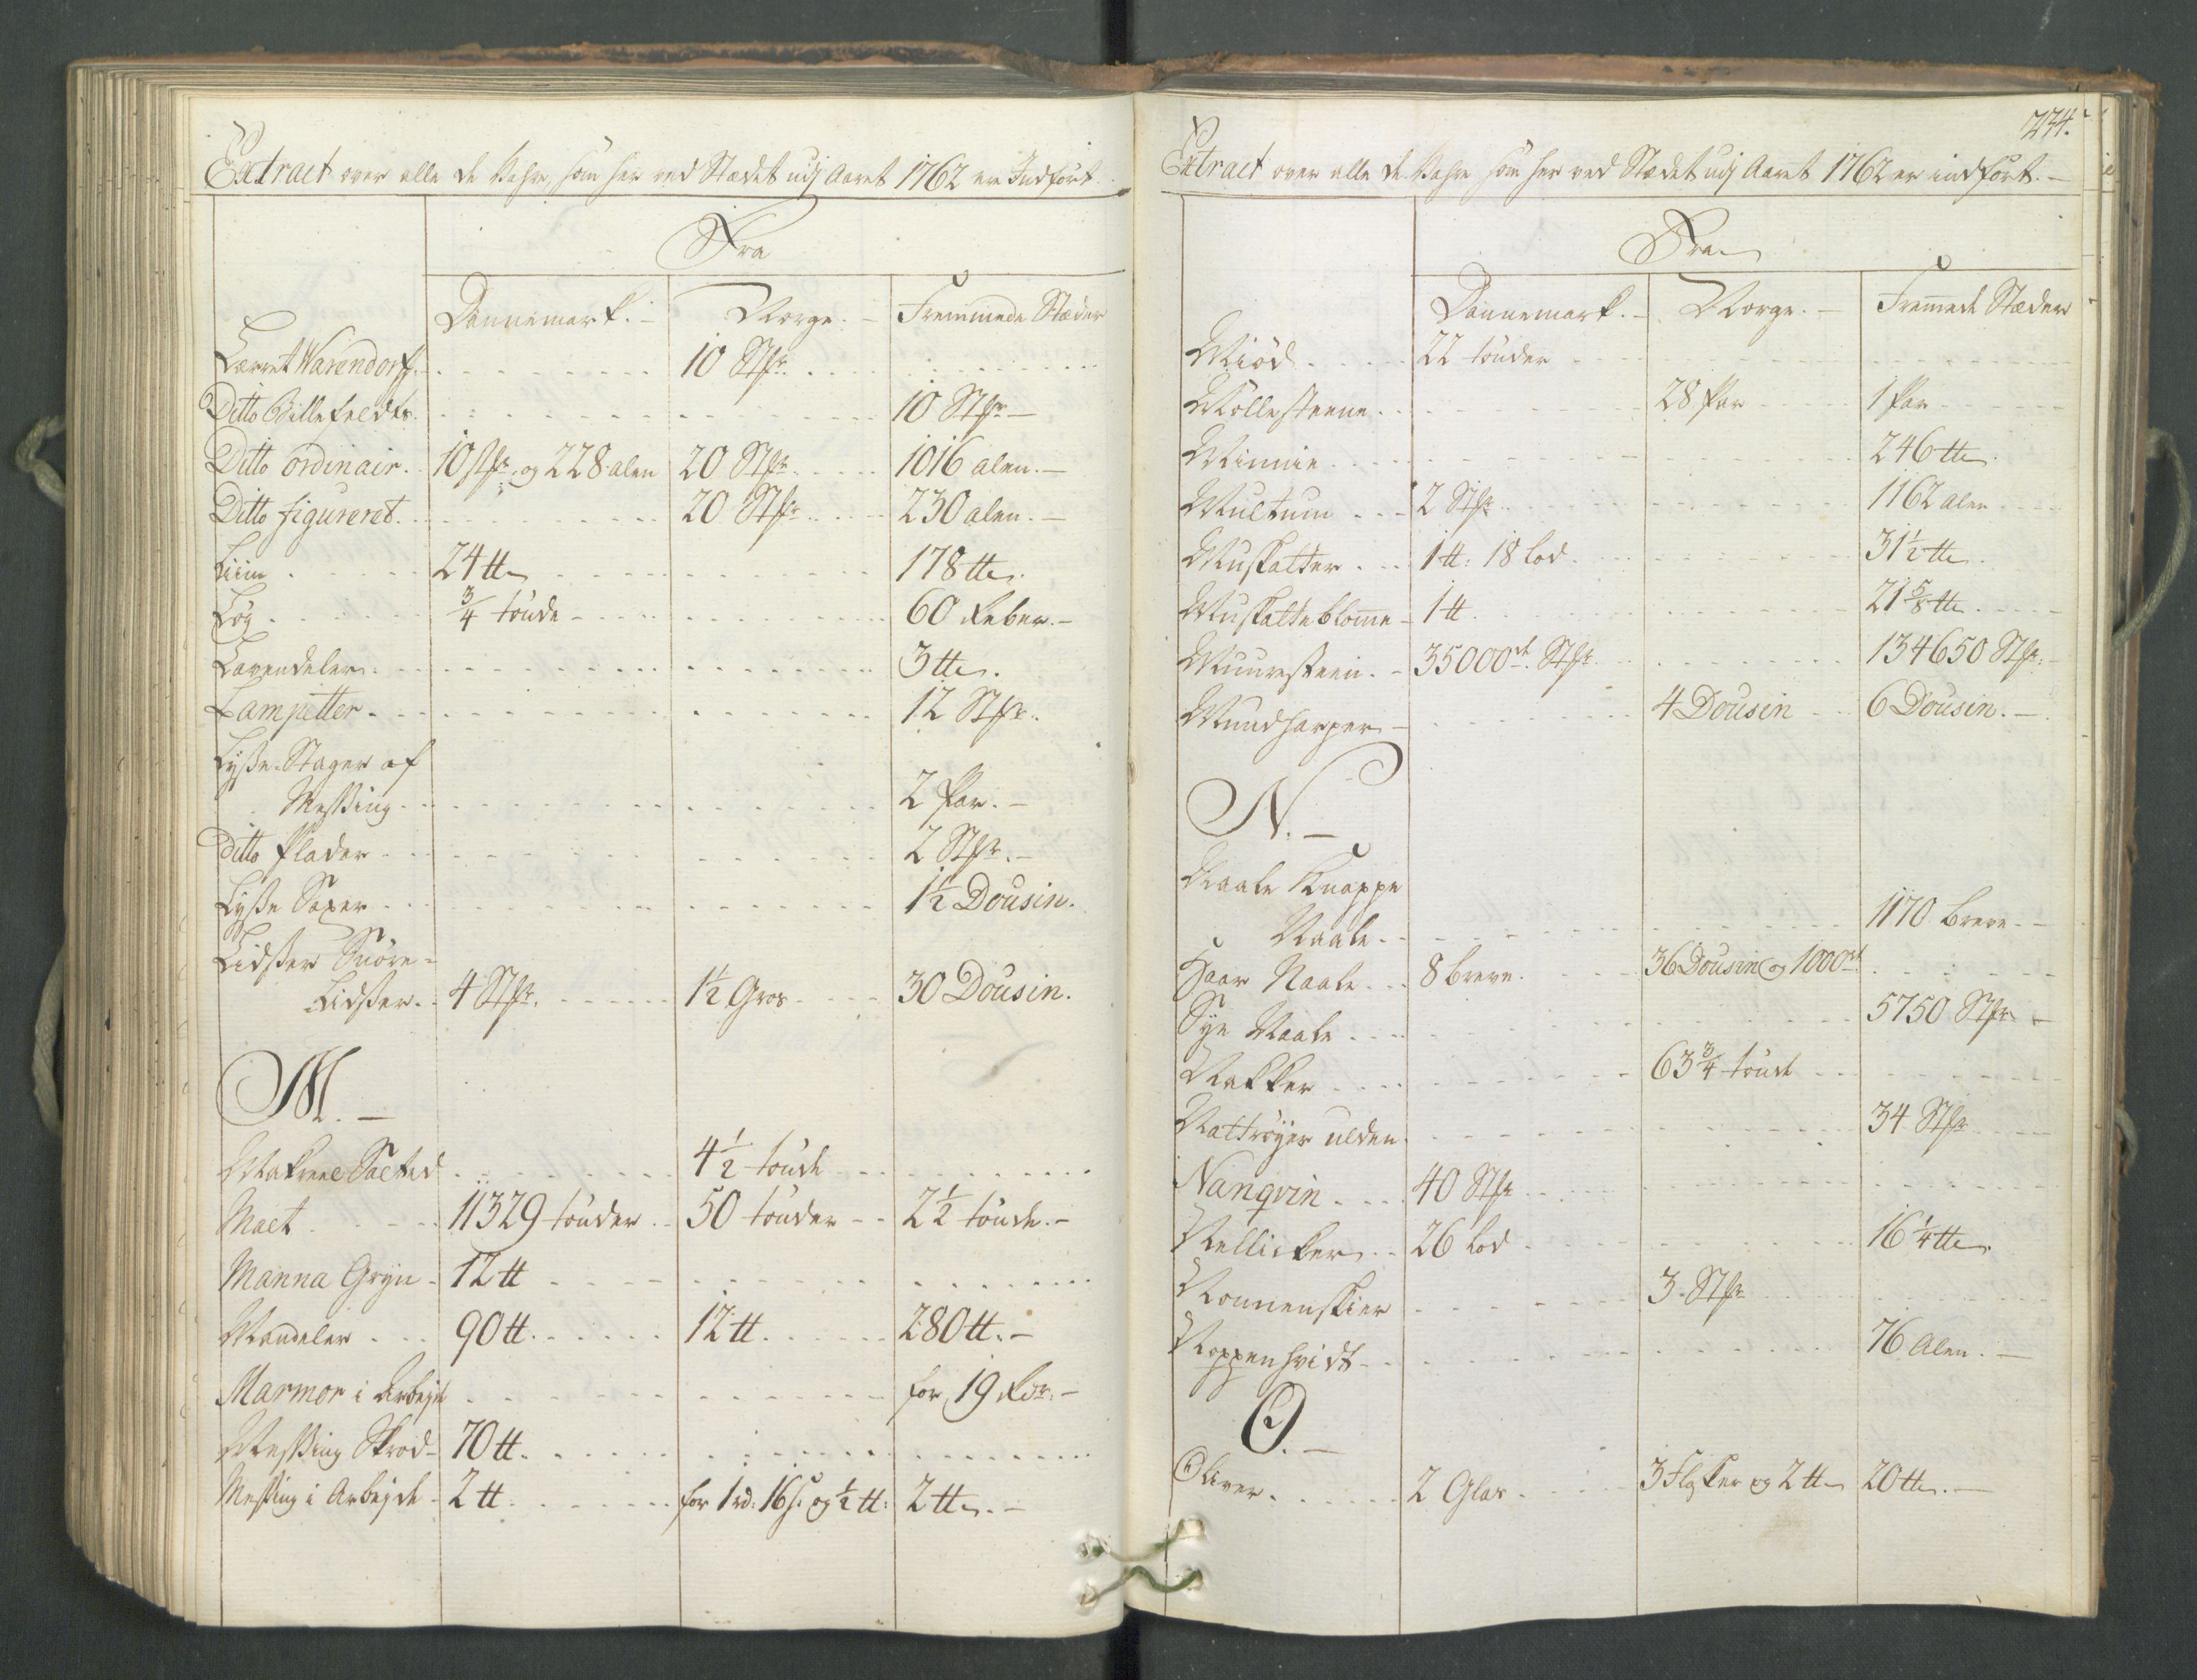 Extract over alle de Vahre, som her ved Stædet udj Aaret 1762 ere Indført.
Fra
Dannemark. - Norge. - Fremmede Stæder
Lærret Warendorf. 10 Stkr.
Ditto Billefeldts. 10 Stkr. -
Ditto ordinair. 10 stkr. og 228 alen 20 Stkr. 1016 alen. -
Ditto figureret. 20 Stkr. 230 alen. -
Liim 24 tt 178 tt.
Løg 3/4 tønde 60 Reber. -
Lavendeler. 3 tt.
Lampetter. 12 Stkr.
Lysse-Stager af
Messing. 2 Par. -
Ditto Plader 2 Stkr. -
Lysse Saxer 1½ Dousin.
Lidsser Snøre-
Lidsser. 4 Stkr. 1½ Gros 30 Dousin.
M. -
Makreel Saltet 4½ tønde
Malt 11329 tønder 50 tønder 2½ tønde. -
Manna Gryn - 12 tt
Mandeler 90 tt. 12 tt. 280 tt. -
Marmor i Arbejde for 19 Rdr. -
Messing Skrod - 70 tt.
Messing i Arbejde - 2 tt. for 1 rd: 16 s. og ½ tt: 2 tt. -
274.
Extract over alle de Vahre som her ved Stædet udj Aaret 1762 er indført. -
Fra
Dannemark. - Norge. - Fremmede Stæder
Miød 22 tønder
Møllesteene. 28 Par 1 Par
Minnie 246 tt.
Multum 2 Stkr. 1162 alen
Muskatter 1 tt: 18 lod. 31½ tt.
Muskatteblomme - 1 tt. 21 5/8 tt.
Muursteen. - 35000 rt. Stkr. 134650 Stkr. -
Mundharper - 4 Dousin 6 Dousin. -
N. -
Naale Knappe
Naale. 1170 breve. -
Haar Naale 8 breve. 36 Dousin og 1000 rt.
Sye Naale 5750 Stkr. -
Nøkker 63¾ tønde
Nattrøyer ulden. 34 Stkr.
Nanqvin 40 Stkr.
Nellicker 26 lod 16¼ tt.
3 Stkr
Noppenhvidt 76 Alen. -
O. -
Oliver 2 Glas 3 Flasker og 2 tt 20 tt. -